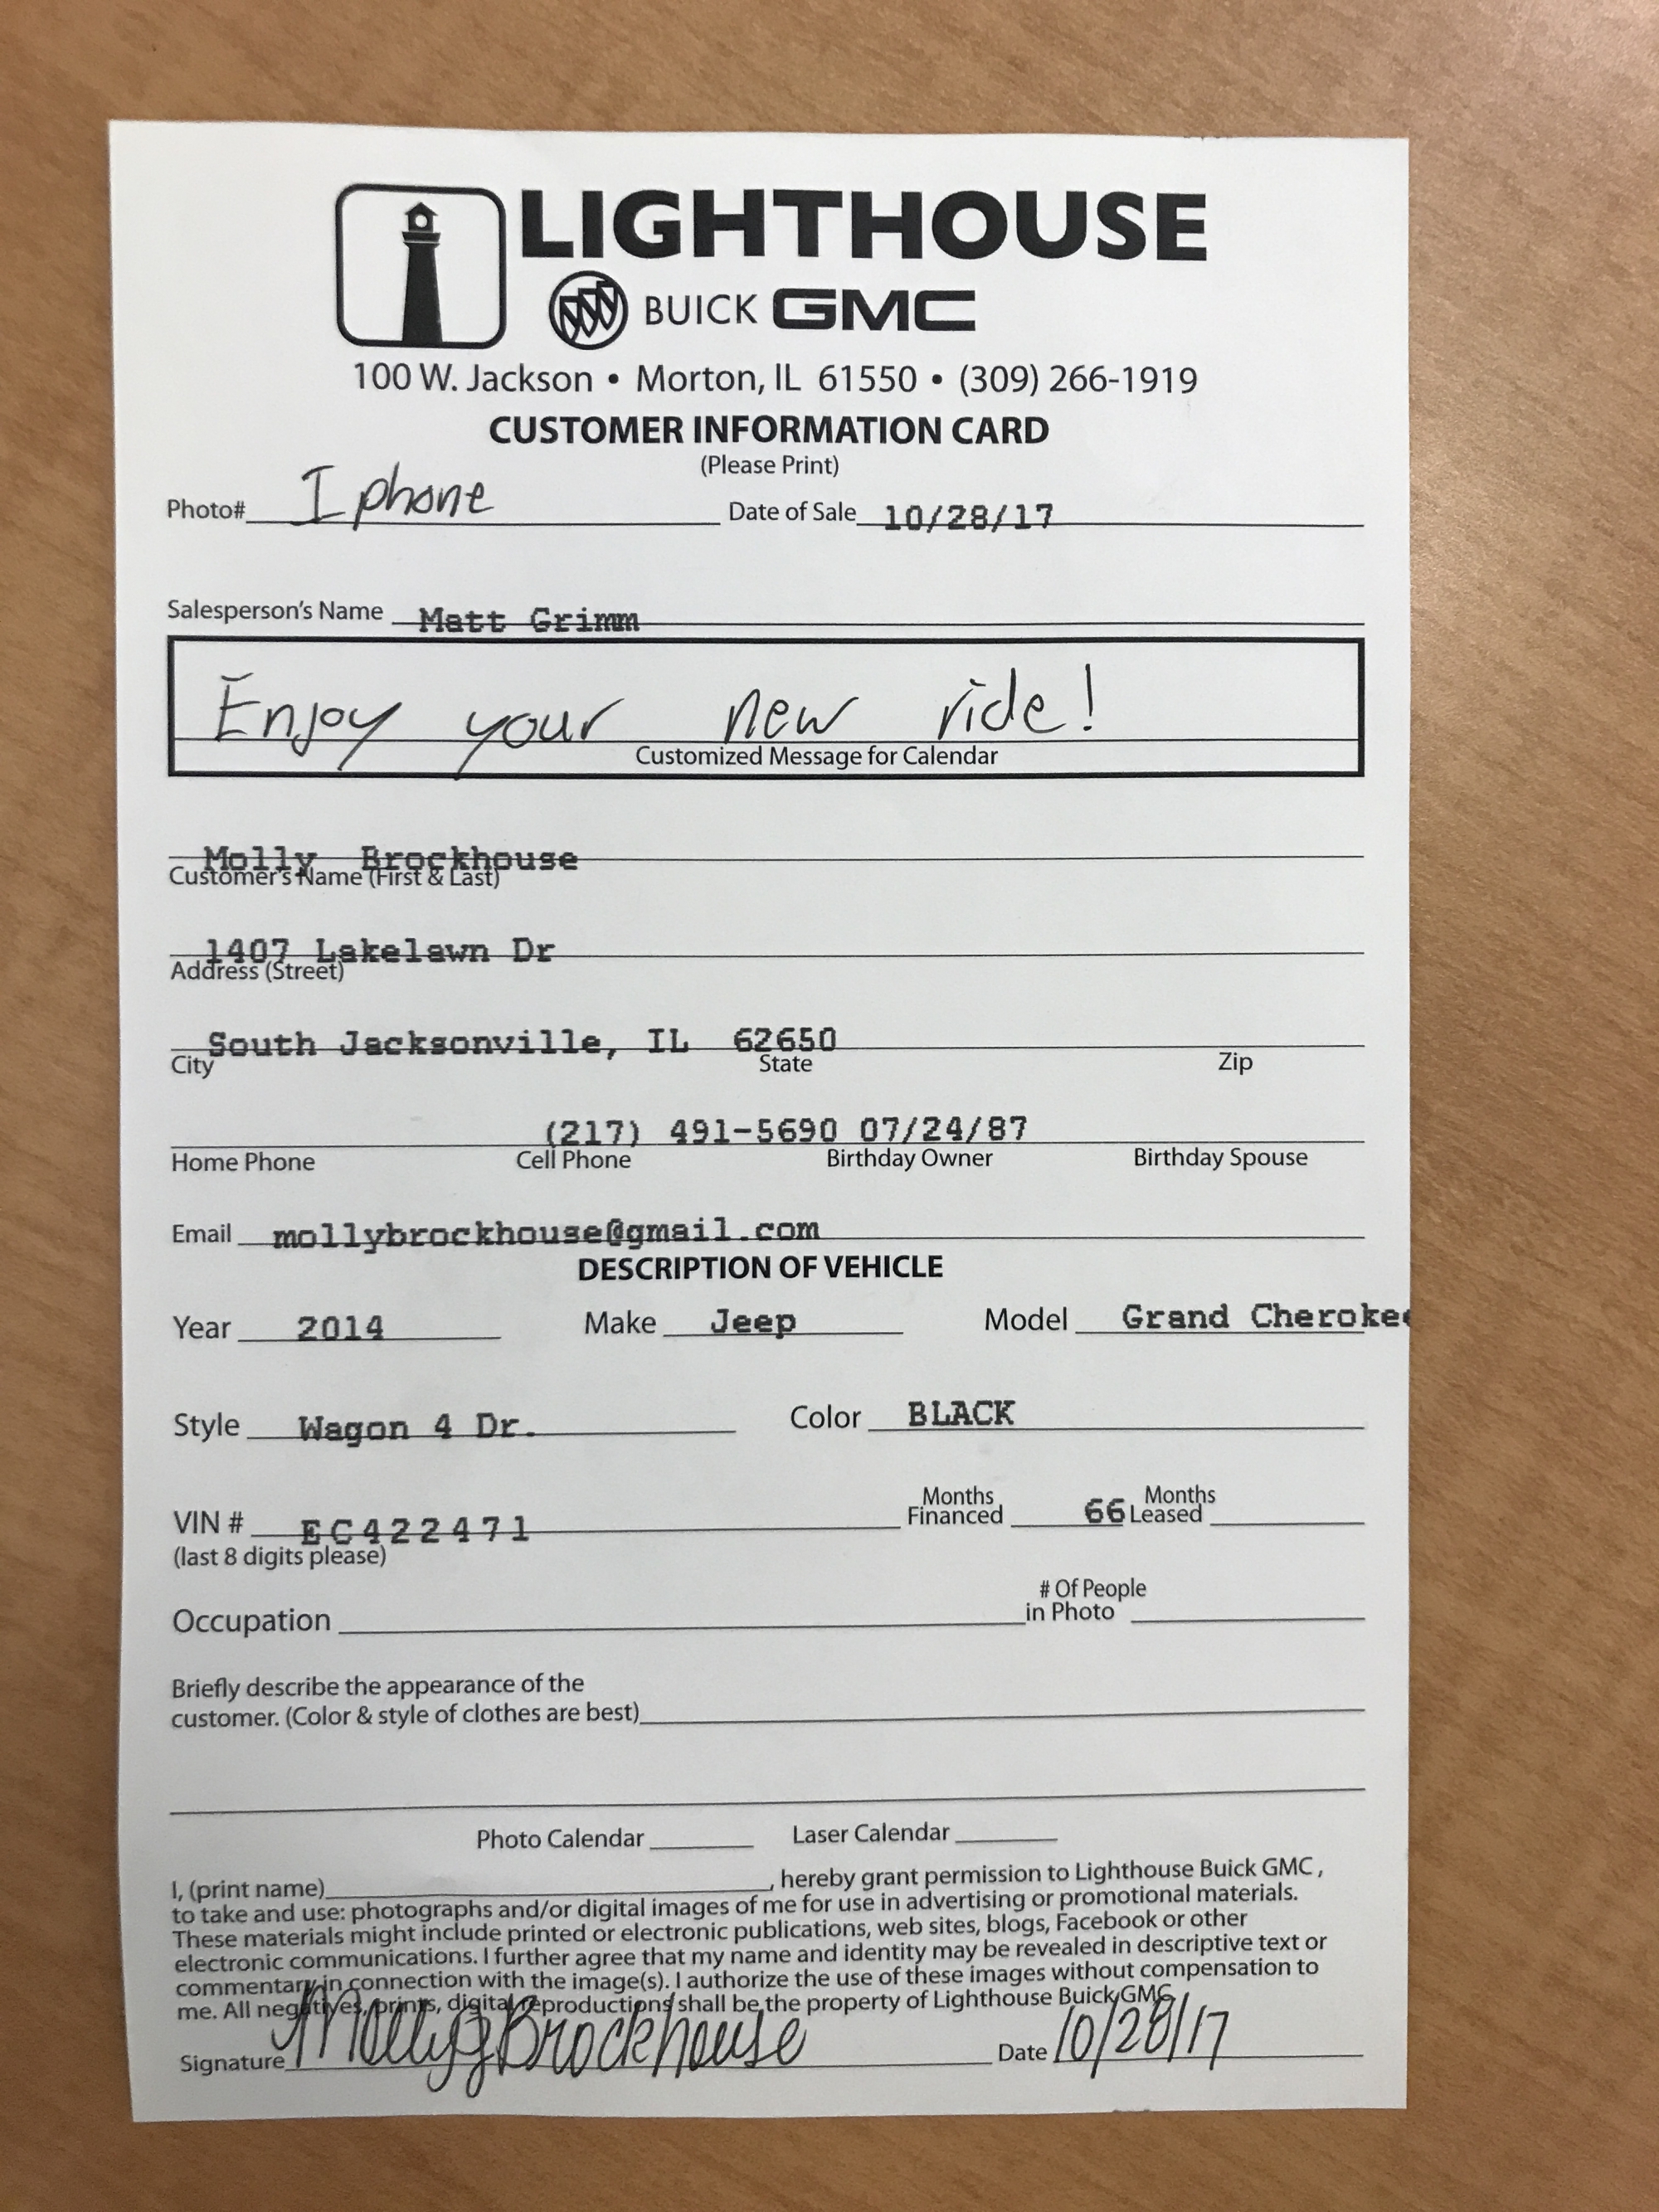 LIGHTHOUSE
BUICK GMC
100 W. Jackson • Morton, IL 61550 • (309) 266-1919
CUSTOMER INFORMATION CARD
(Please Print)
Photo# I phone Date of Sale 10/28/17
Salesperson's Name Matt Grimm
Enjoy your new ride!
Customized Message for Calendar
Molly Brockhouse
Customer's Name (First & Last)
1407 Lakelawn Dr
Address (Street)
South Jacksonville, IL 62650
City State Zip
(217) 491-5690 07/24/87
Home Phone Cell Phone Birthday Owner Birthday Spouse
Email mollybrockhouse@gmail.com
DESCRIPTION OF VEHICLE
Year 2014 Make Jeep Model Grand Cherokee
Style Wagon 4 Dr. Color BLACK
VIN # EC422471 Months Financed 66 Months Leased
(last 8 digits please)
Occupation # Of People in Photo
Briefly describe the appearance of the
customer. (Color & style of clothes are best)
Photo Calendar Laser Calendar
I, (print name) , hereby grant permission to Lighthouse Buick GMC ,
to take and use: photographs and/or digital images of me for use in advertising or promotional materials.
These materials might include printed or electronic publications, web sites, blogs, Facebook or other
electronic communications. I further agree that my name and identity may be revealed in descriptive text or
commentary in connection with the image(s). I authorize the use of these images without compensation to
me. All negatives, prints, digital reproductions shall be the property of Lighthouse Buick GMC.
Signature Molly J Brockhouse Date 10/28/17